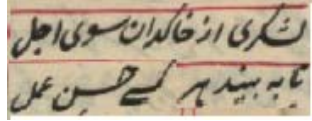 لشکری از خاکدان سوی اجل
تا به بیند هر کسے حسن عمل